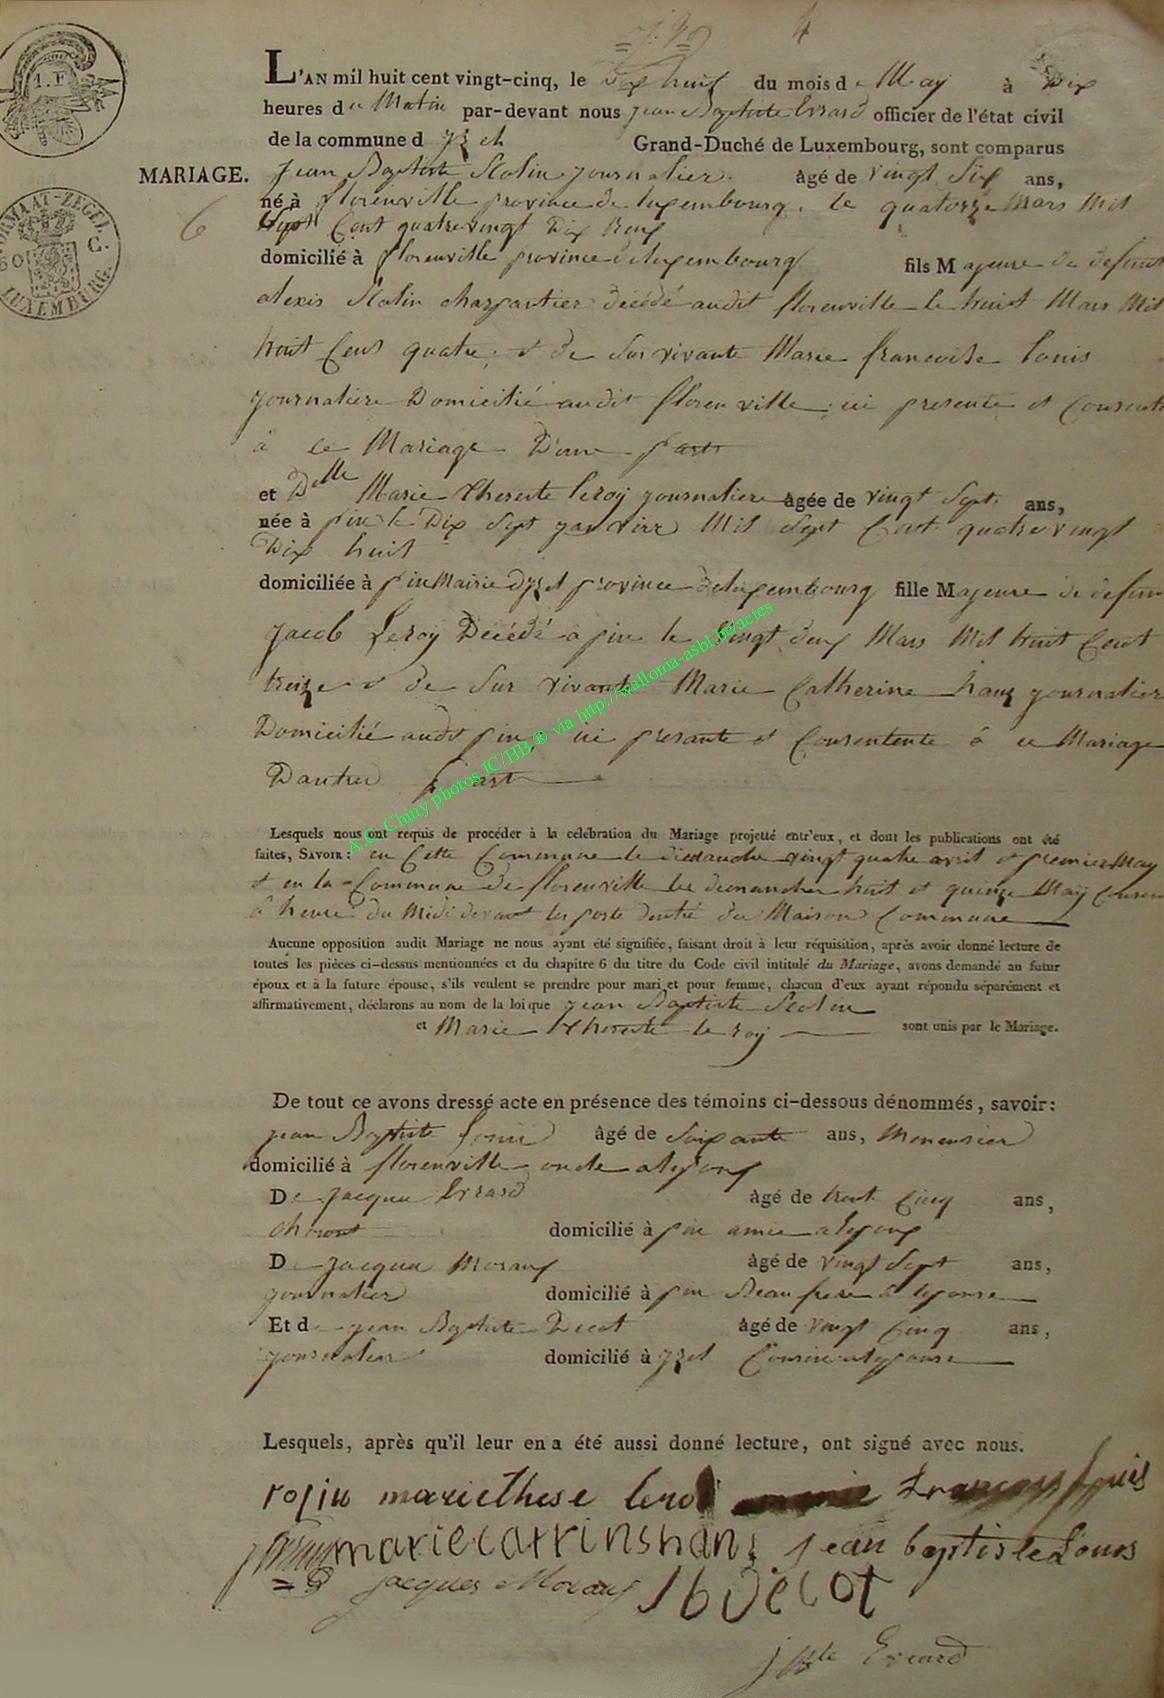 4
L'AN mil huit cent vingt-cinq, le Dix huit du mois de May à Dix
heures du Matin par-devant nous jean Baptiste Evrard officier de l'état civil
de la commune d'yzel Grand-Duché de Luxembourg, sont comparus
MARIAGE. Jean Baptiste journalier âgé de vingt Six ans,
6 né à florenville province de luxembourg, le quatorze Mars Mil
Sept Cent quatrevingt Dix neuf
domicilié à florenville province deluxembourg fils Majeure de defunt
alexis charpantier décédé audit florenville le huit Mars Mil
huit Cent quatre, et de Survivante Marie francoise louis
journaliere Domicilié audit florenville ici presente et Consente
à ce Mariage D'une part
et Delle Marie therese leroÿ journaliere âgée de vingt Sept ans,
née à pin le Dix Sept janvier Mil Sept Cent quatrevingt
Dix huit
domiciliée à pin Mairie d'yzel province deluxembourg fille Majeure de defunt
Jacob Leroÿ Décédé a pin le Vingt deux Mars Mil huit Cent
treize et de Survivante Marie Catherine journalier
Domicilié audit pin, ici presante et Consentente à ce Mariage
Dautre part
A.C. Chiny photos JC/HB ® via http://wallonia-asbl.be/actes
Lesquels nous ont requis de procéder à la célébration du Mariage projetté entr'eux, et dont les publications ont été
faites, SAVOIR : en Cette Commune le dimanche vingt quatre avril et premier May
et en la Commune de florenville le dimanche huit et quinze Maÿ
à heure du Midi devant les porte dentré de Maison Commune
Aucune opposition audit Mariage ne nous ayant été signifiée, faisant droit à leur réquisition, après avoir donné lecture de
toutes les pièces ci-dessus mentionnées et du chapitre 6 du titre du Code civil intitulé du Mariage, avons demandé au futur
époux et à la future épouse, s'ils veulent se prendre pour mari et pour femme, chacun d'eux ayant répondu séparément et
affirmativement, déclarons au nom de la loi que jean Baptiste
et Marie therese le roÿ sont unis par le Mariage.
De tout ce avons dressé acte en présence des témoins ci-dessous dénommés, savoir:
jean Baptiste louis âgé de Soixante ans, Meneusier
domicilié à florenville oncle alepoux
De jacque Evrard âgé de trent Cinq ans,
domicilié à pin amie alepoux
De jacque Moraux âgé de vingt Sept ans,
journalier domicilié à pin Beaufrere a lepouse
Et de jean Baptiste Decot âgé de vingt Cinq ans,
journalier domicilié à yzel Cousin alepouse
Lesquels, après qu'il leur en a été aussi donné lecture, ont signé avec nous.
mariethese leroi françois louis
mariecatrinshans jean baptiste Louis
jacques Moraux Decot
jbte Evrard